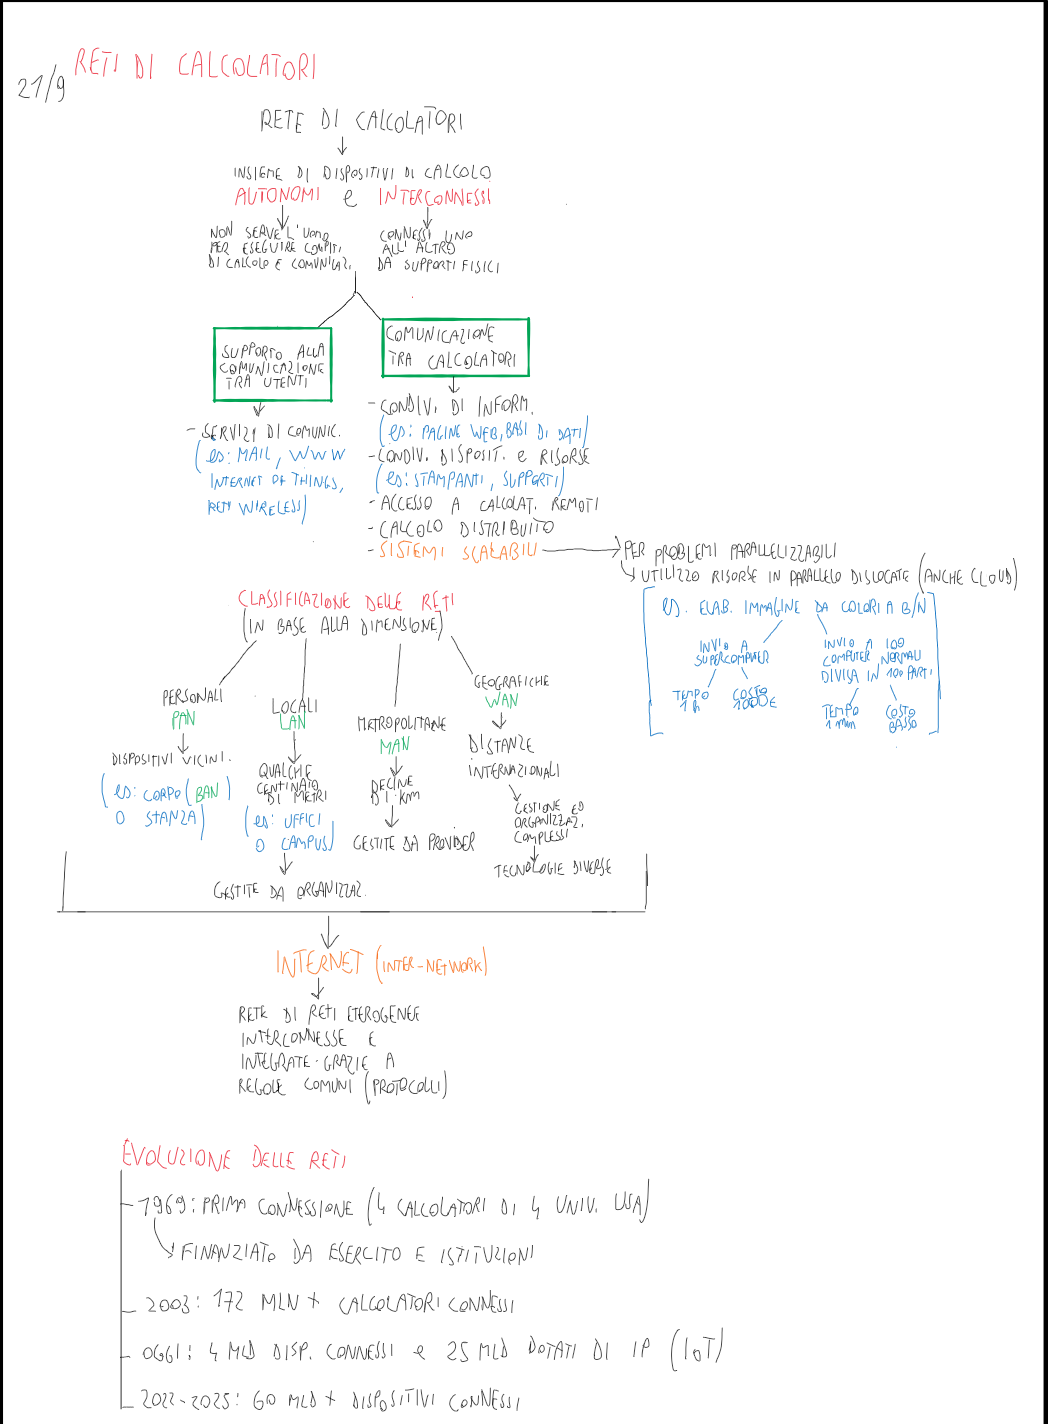 RETI DI CALCOLATORI
21/9
RETE DI CALCOLATORI
INSIEME DI DISPOSITIVI DI CALCOLO
AUTONOMI e INTERCONNESSI
NON SERVE L'UOMO
PER ESEGUIRE COMPITI
DI CALCOLO E COMUNICAZ.
CONNESSI UNO
ALL'ALTRO
DA SUPPORTI FISICI
SUPPORTO ALLA
COMUNICAZIONE
TRA UTENTI
COMUNICAZIONE
TRA CALCOLATORI
- SERVIZI DI COMUNIC.
(es: MAIL, WWW
INTERNET OF THINGS,
RETI WIRELESS)
- CONDIVI. DI INFORM.
(es: PAGINE WEB, BASI DI DATI)
- CONDIV. DISPOSIT. e RISORSE
(es: STAMPANTI, SUPPORTI)
- ACCESSO A CALCOLAT. REMOTI
- CALCOLO DISTRIBUITO
- SISTEMI SCALABILI
PER PROBLEMI PARALLELIZZABILI
UTILIZZO RISORSE IN PARALLELO DISLOCATE (ANCHE CLOUD)
es. ELAB. IMMAGINE DA COLORI A B/N
INVIO A
SUPERCOMPUTER
TEMPO
1 h
COSTO
1000€
INVIO A 100
COMPUTER NORMALI
DIVISA IN 100 PARTI
TEMPO
1 min
COSTO
BASSO
CLASSIFICAZIONE DELLE RETI
(IN BASE ALLA DIMENSIONE)
PERSONALI
PAN
DISPOSITIVI VICINI.
(es: CORPO (BAN)
O STANZA)
LOCALI
LAN
QUALCHE
CENTINAIO
DI METRI
(es: UFFICI
O CAMPUS)
GESTITE DA ORGANIZZAZ.
METROPOLITANE
MAN
DECINE
DI KM
GESTITE DA PROVIDER
GEOGRAFICHE
WAN
DISTANZE
INTERNAZIONALI
GESTIONE ED
ORGANIZZAZ.
COMPLESSI
TECNOLOGIE DIVERSE
INTERNET (INTER-NETWORK)
RETE DI RETI ETEROGENEE
INTERCONNESSE E
INTEGRATE GRAZIE A
REGOLE COMUNI (PROTOCOLLI)
EVOLUZIONE DELLE RETI
1969: PRIMA CONNESSIONE (4 CALCOLATORI DI 4 UNIV. USA)
FINANZIATO DA ESERCITO E ISTITUZIONI
2003: 172 MLN + CALCOLATORI CONNESSI
OGGI: 4 MLD DISP. CONNESSI e 25 MLD DOTATI DI IP (IoT)
2022-2025: 60 MLD + DISPOSITIVI CONNESSI